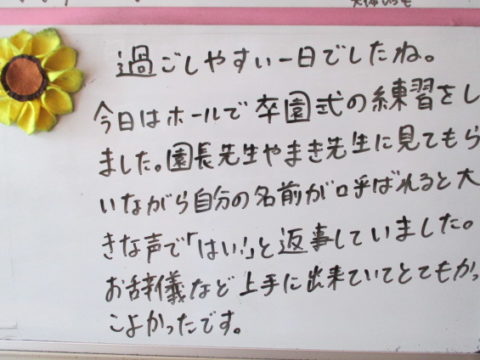 過ごしやすい一日でしたね。
今日はホールで卒園式の練習をし
ました。園長先生やまき先生に見てもら
いながら自分の名前が呼ばれると大
きな声で「はい!」と返事していました。
お辞儀など上手に出来ていてとてもかっ
こよかったです。